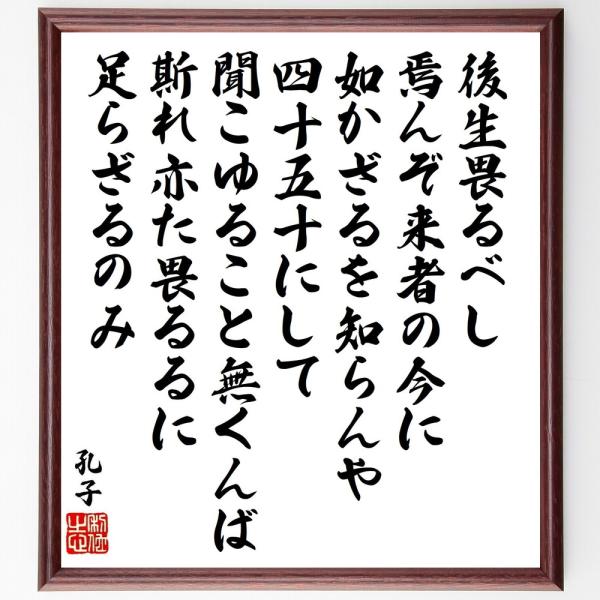 後生畏るべし
焉んぞ来者の今に
如かざるを知らんや
四十五十にして
聞こゆること無くんば
斯れ亦た畏るるに
足らざるのみ
孔子